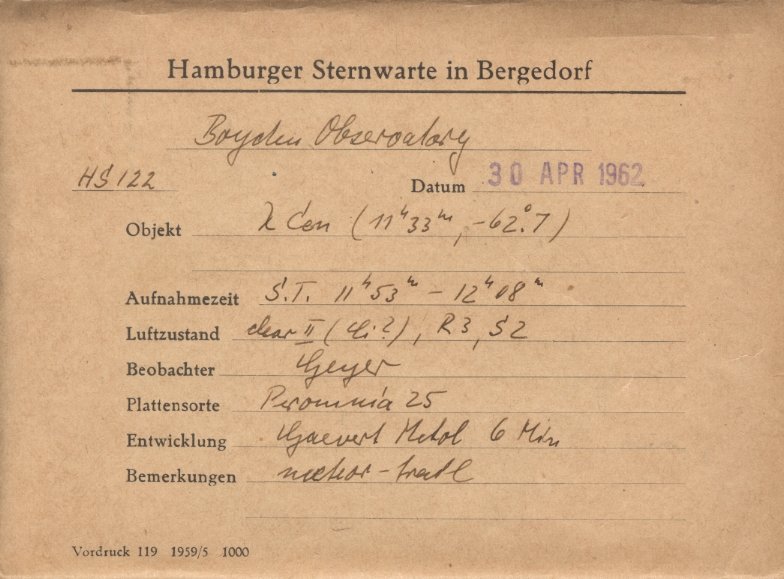 Hamburger Sternwarte in Bergedorf
Boyden Observatory
HS 122
Datum 30 APR 1962
Objekt λ Cen (11ʰ33ᵐ, -62°.7)
Aufnahmezeit S.T. 11ʰ53ᵐ - 12ʰ08ᵐ
Luftzustand clear II (Ci?), R3, S2
Beobachter Geyer
Plattensorte Peromnia 25
Entwicklung Gaevert Metol 6 Min
Bemerkungen meteor-trail
Vordruck 119 1959/5 1000